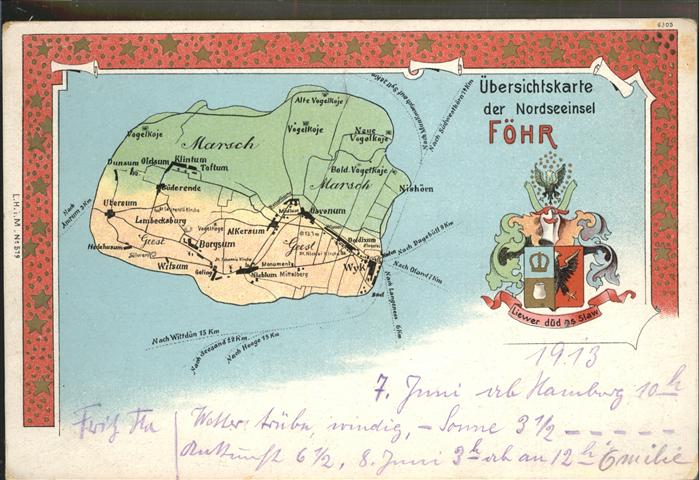 6305
Übersichtskarte
der Nordseeinsel
FÖHR
Alte Vogelkoje
Vogelkoje
Vogelkoje
Neue Vogelkoje
Marsch
Marsch
Bold. Vogelkoje
Dunsum
Oldsum
Klintum
Toftum
Süderende
Nishörn
Utersum
Lembecksburg
Alkersum
Oevenum
Midlum
Geest
Geest
Borgsum
Hedehusum
Witsum
Goting
Nieblum
Mittelberg
Monument
Boldixum
Wyk
Nach Amrum 3 Km
Nach Dagebüll 9 Km
Nach Oland 7 Km
Nach Langeness 6 Km
Nach Wittdün 15 Km
Nach Hooge 15 Km
L.H.i.M. No 519
Liewer düd as Slaw
1913
7. Juni ab Hamburg 10 h
Fritz
Wetter trübe, windig, – Sonne 3 1/2
Ankunft 6 1/2, 8. Juni 3 h ab an 12 h Emilie